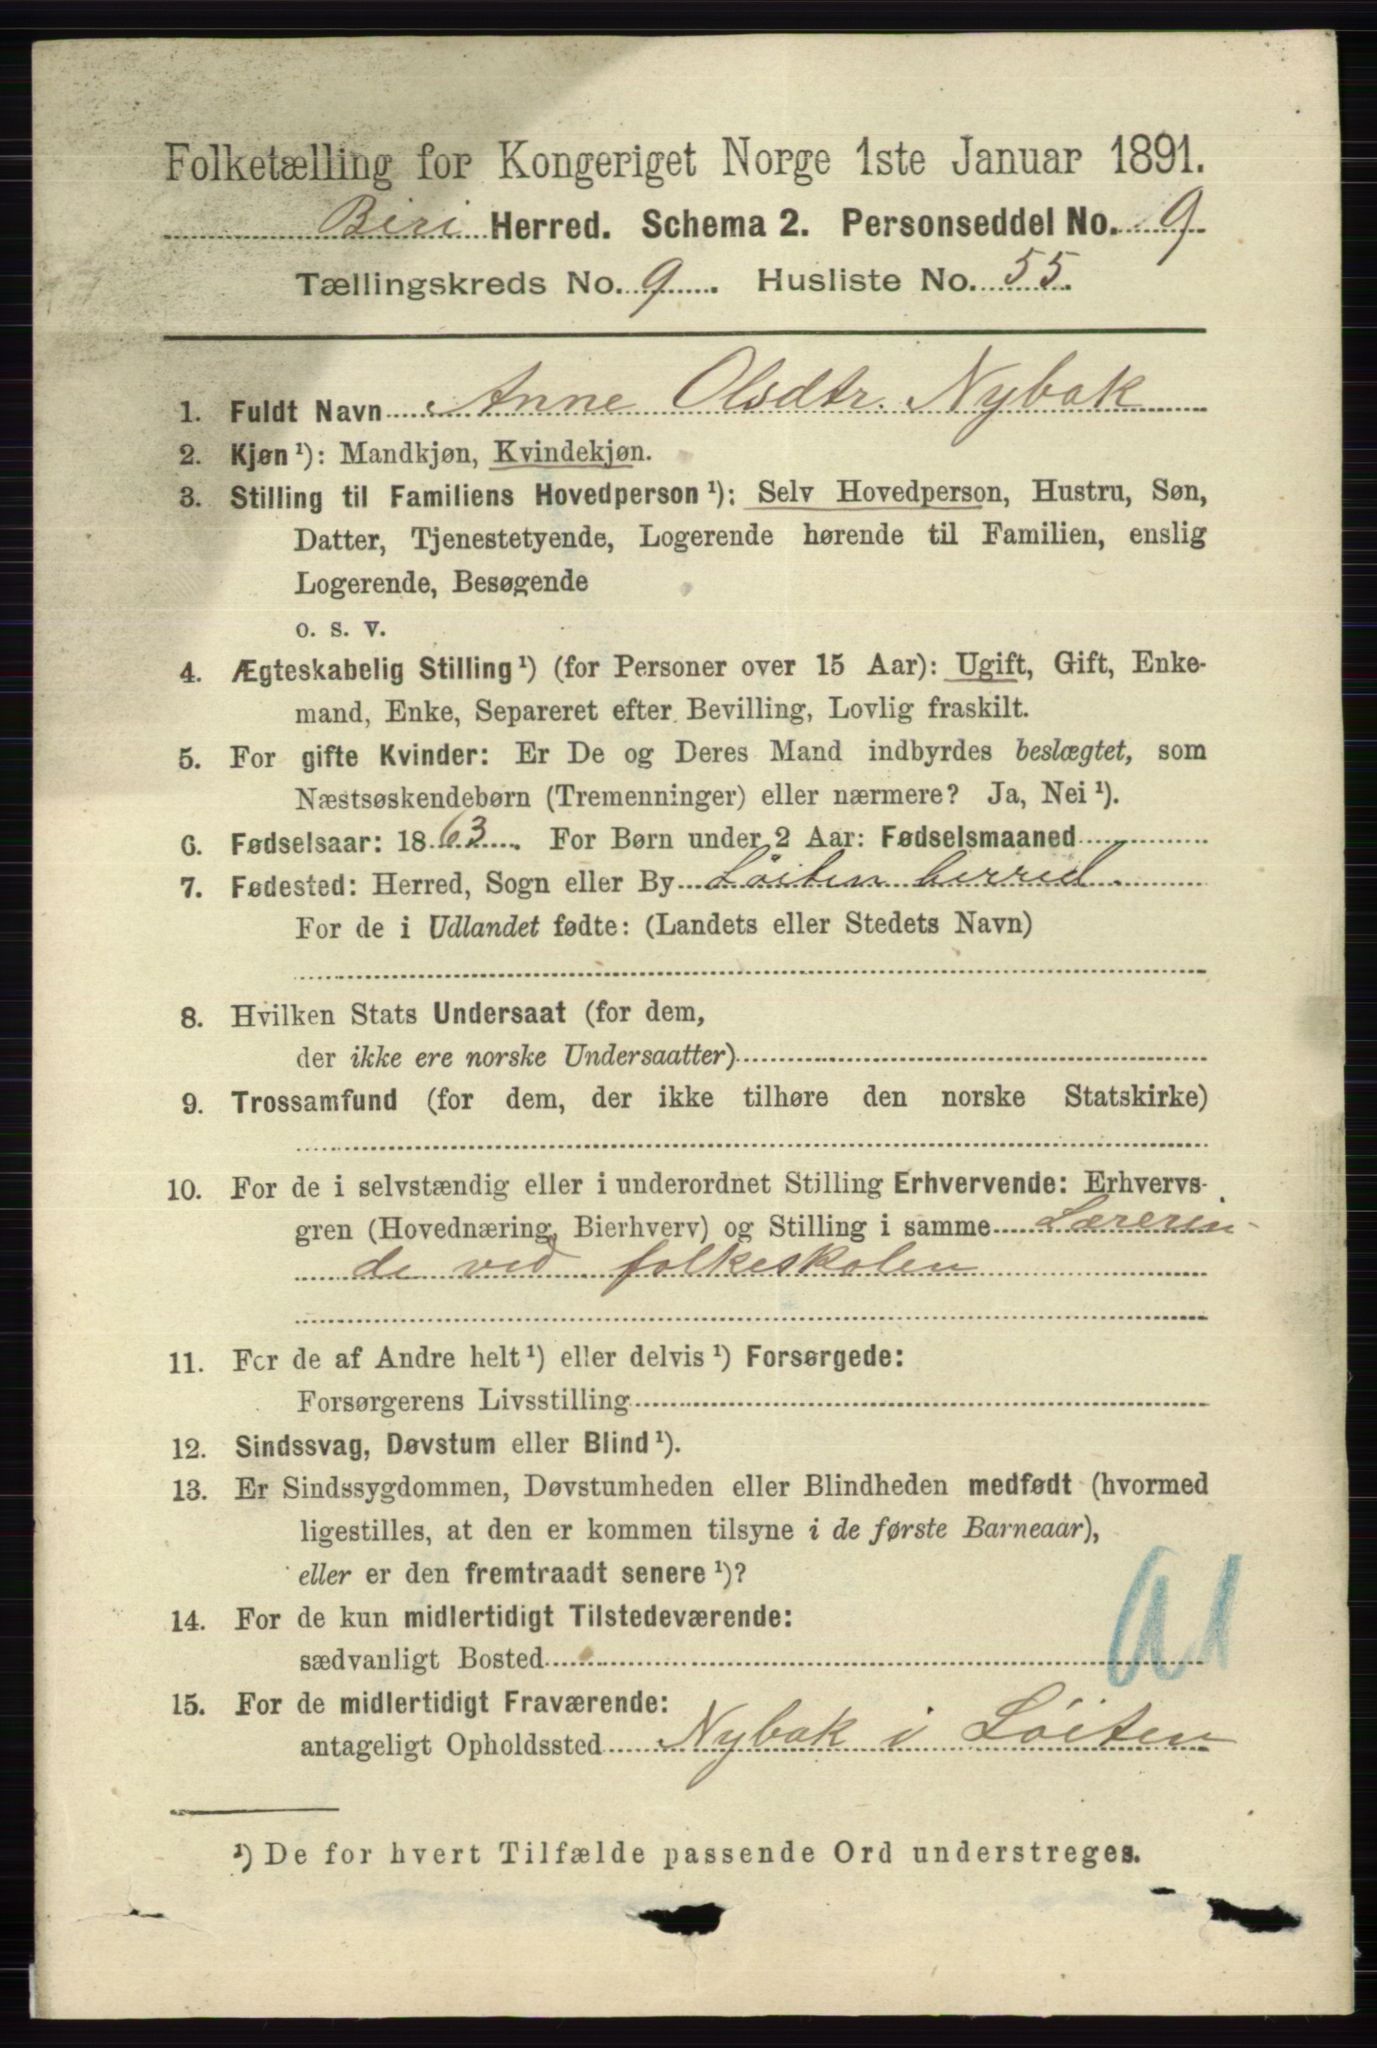 Folketælling for Kongeriget Norge 1ste Januar 1891.
Biri Herred. Schema 2. Personseddel No. 9
Tællingskreds No. 9. Husliste No. 55.
1. Fuldt Navn Anne Olsdtr. Nybak
2. Kjøn¹): Mandkjøn, Kvindekjøn.
3. Stilling til Familiens Hovedperson¹): Selv Hovedperson, Hustru, Søn,
Datter, Tjenestetyende, Logerende hørende til Familien, enslig
Logerende, Besøgende
o. s. v.
4. Ægteskabelig Stilling¹) (for Personer over 15 Aar): Ugift, Gift, Enke-
mand, Enke, Separeret efter Bevilling, Lovlig fraskilt.
5. For gifte Kvinder: Er De og Deres Mand indbyrdes beslægtet, som
Næstsøskendebørn (Tremenninger) eller nærmere? Ja, Nei¹).
6. Fødselsaar: 1863. For Børn under 2 Aar: Fødselsmaaned
7. Fødested: Herred, Sogn eller By Löiten herred.
For de i Udlandet fødte: (Landets eller Stedets Navn)
8. Hvilken Stats Undersaat (for dem,
der ikke ere norske Undersaatter)
9. Trossamfund (for dem, der ikke tilhøre den norske Statskirke)
10. For de i selvstændig eller i underordnet Stilling Erhvervende: Erhvervs-
gren (Hovednæring, Bierhverv) og Stilling i samme Lærerin-
de ved folkeskolen
11. For de af Andre helt¹) eller delvis¹) Forsørgede:
Forsørgerens Livsstilling
12. Sindssvag, Døvstum eller Blind¹).
13. Er Sindssygdommen, Døvstumheden eller Blindheden medfødt (hvormed
ligestilles, at den er kommen tilsyne i de første Barneaar),
eller er den fremtraadt senere¹)?
14. For de kun midlertidigt Tilstedeværende:
sædvanligt Bosted
a1
15. For de midlertidigt Fraværende:
antageligt Opholdssted Nybak i Löiten
¹) De for hvert Tilfælde passende Ord understreges.